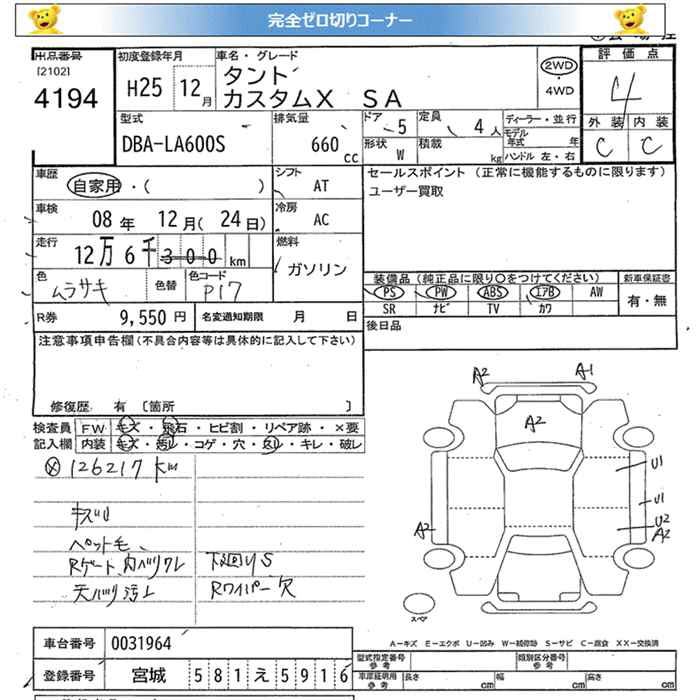 完全ゼロ切りコーナー
出品番号
[2102]
4194
初度登録年月
H25 12月
車名・グレード
タント
カスタムX SA
2WD
・
4WD
評価点
4
外装 内装
C C
型式
DBA-LA600S
排気量
660 cc
ドア
5
定員
4人
形状
W
積載
kg
ディーラー・並行
モデル年式 年
ハンドル 左・右
車歴
自家用・( )
シフト
AT
車検
08年 12月(24日)
冷房
AC
走行
12万6千300km
燃料
ガソリン
色
ムラサキ
色替
色コード
P17
R券
9,550円
名変通知期限 月 日
セールスポイント (正常に機能するものに限ります)
ユーザー買取
装備品 (純正品に限り○をつけてください)
PS PW ABS エアB AW
SR ナビ TV カワ
新車保証書
有・無
後日品
注意事項申告欄(不具合内容等は具体的に記入して下さい)
修復歴 有 〔箇所 〕
検査員 FW キズ・飛石・ヒビ割・リペア跡・×要
記入欄 内装 キズ・汚レ・コゲ・穴・スレ・キレ・破レ
126217km
キズU
ペット毛、
Rゲート、内ハリワレ
天ハリ汚レ
下廻りS
Rワイパー欠
A2 A1
A2
U1
U1
A2
U2
A2
スペア
A-キズ E-エクボ U-凹み W-補修跡 S-サビ C-腐食 XX-交換済
車台番号 0031964
登録番号 宮城 581え5916
型式指定番号
参考
類別区分番号
参考
車庫証明用
参考
長さ cm 幅 cm 高さ cm